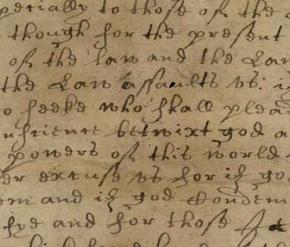 pecially to those of the
though for the present
of the law and the Lan
the Law assaults vs: i
o seeke who shall plead
nscience betwixt god a
powers of this world
er excuse vs for if go
em and if god condem
fye and for those